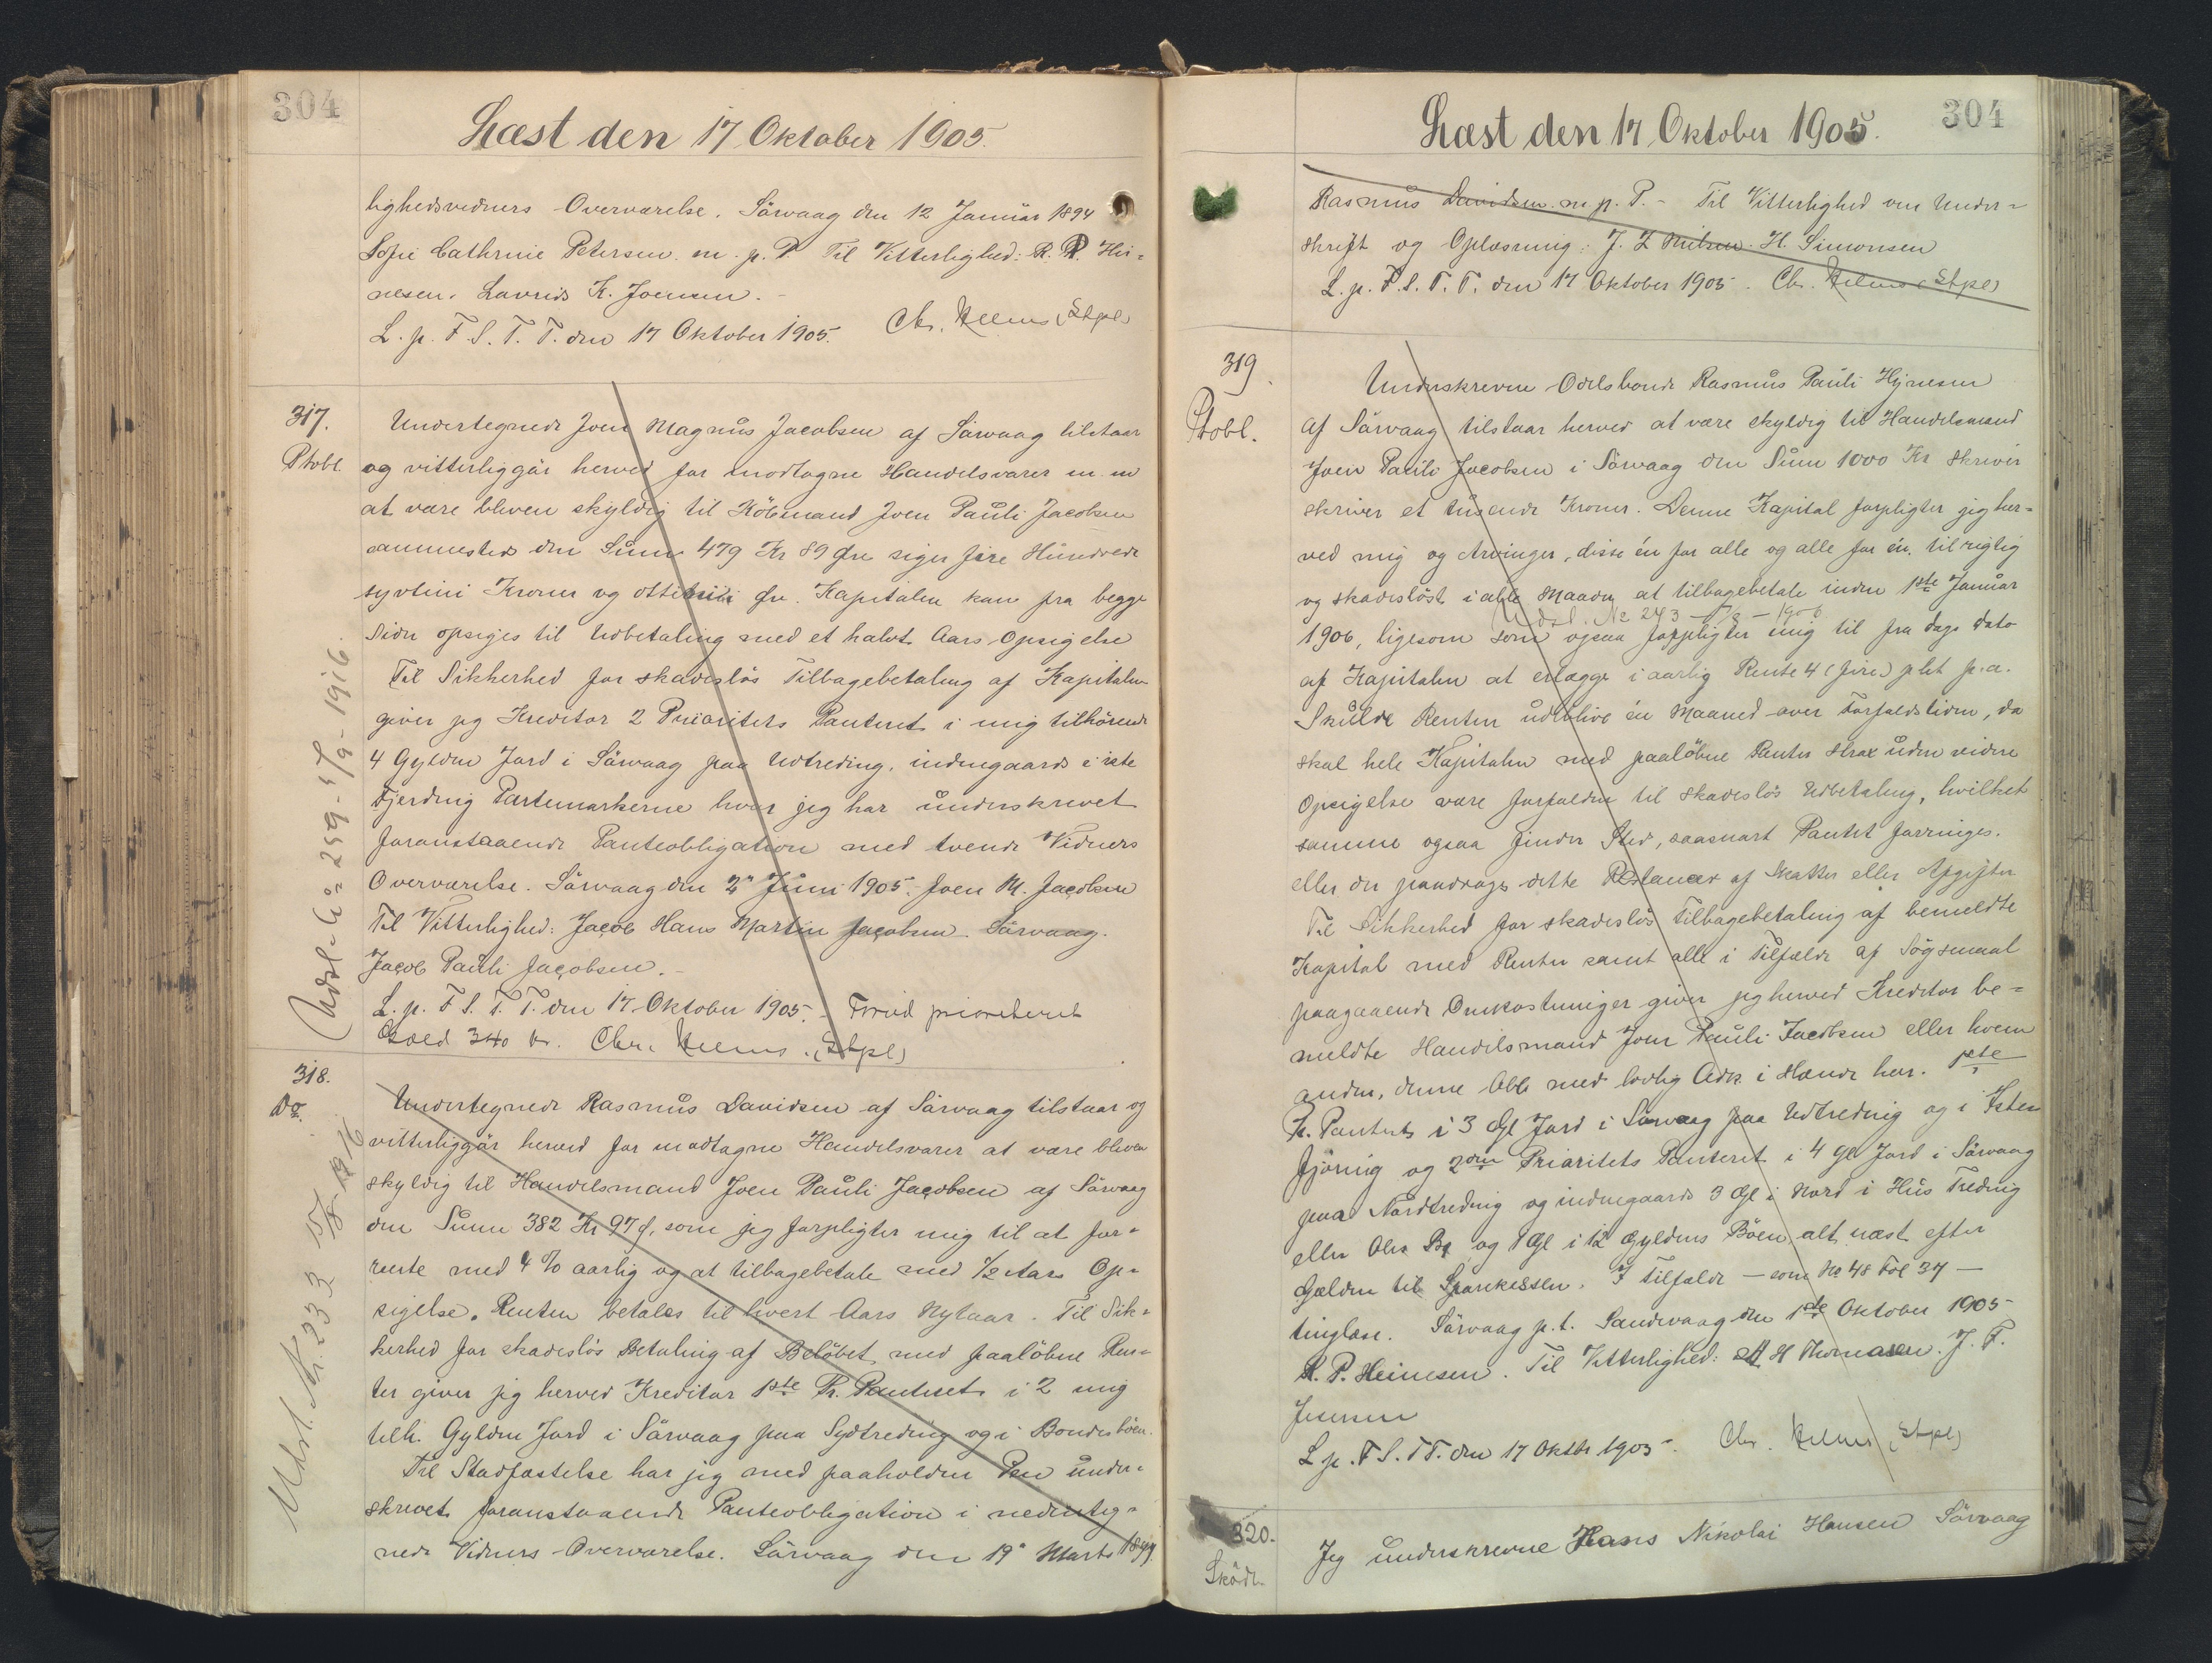 304
Læst den 17 Oktober 1905.
lighedsvidners Overværelse. Sörvaag den 12 Januar 1894
Sofie Cathrine Petersen m. p. P. Til Vitterlighed: R. P. Hei-
nesen. Lavrids K. Joensen.
L. p. F. S. T. T. den 17 Oktober 1905. Chr. (Stpl)
317.
Ptobl.
Undertegnede Joen Magnus Jacobsen af Sörvaag tilstaar
og vitterliggör herved for modtagne Handelsvarer m. m
at være bleven skyldig til Köbmand Joen Pauli Jacobsen
sammesteds den Sum 479 Kr 89 Øre siger fire Hundrede
syvtini Kroner og ottini Øre. Kapitalen kan fra begge
Sider opsiges til Udbetaling med et halvt Aars Opsigelse
Til Sikkerhed for skadeslös Tilbagebetaling af Kapitalen
giver jeg Kreditor 2 Prioritets Panteret i mig tilhörende
4 Gylden Jord i Sörvaag paa Udtreding, indengaards i iste
Fjerding Partemarkerne hvor jeg har underskrevet
foranstaaende Panteobligation med tvende Vidners
Overværelse. Sörvaag den 2 Juni 1905. Joen M. Jacobsen
Til Vitterlighed: Jacob Hans Martin Jacobsen. Sörvaag.
Jacob Pauli Jacobsen.
L. p. F. S. T. T. den 17 Oktober 1905. Forud prioriteret
Gæld 340 Kr. Chr. (Stpl)
Udsl. No 259 - 5/9 - 1916.
318.
Do.
Undertegnede Rasmus Davidsen af Sörvaag tilstaar og
vitterliggör herved for modtagne Handelsvarer at være bleven
skyldig til Handelsmand Joen Pauli Jacobsen af Sörvaag
den Sum 382 Kr 97 Ø, som jeg forpligter mig til at for-
rente med 4 % aarlig og at tilbagebetale med 1/2 Aars Op-
sigelse. Renten betales til hvert Aars Nytaar. Til Sik-
kerhed for skadeslös Betaling af Belöbet med paalöbne Ren-
ter giver jeg herved Kreditor 1ste Pr. Panteret i 2 mig
tilh. Gylden Jord i Sörvaag paa Sydtreding og i Bondesböen.
Til Stadfæstelse har jeg med paaholden Pen under-
skrevet foranstaaende Panteobligation i underteg-
nede Vidners Overværelse. Sörvaag den 19 Marts 1899.
Udsl. Nr. 233 15/8 1916
304
Læst den 17 Oktober 1905.
Rasmus Davidsen m. p. P. - Til Vitterlighed om Under-
skrift og Oplæsning: J. Z Nielsen. H. Simonsen
L. p. F. S. T. T. den 17 Oktober 1905. Chr. (Stpl)
319.
Ptobl.
Underskrevne Odelsbonde Rasmus Pauli Hejnesen
af Sörvaag tilstaar herved at være skyldig til Handelsmand
Joen Pauli Jacobsen i Sörvaag den Sum 1000 Kr skriver
skriver et tusende Kroner. Denne Kapital forpligter jeg her-
ved mig og Arvinger, disse én for alle og alle for én, til rigtig
og skadeslöst i alle Maader at tilbagebetale inden 1ste Januar
Udsl. No 273
1906, ligesom som ogsaa forpligter mig til fra Dags Dato
af Kapitalen at erlægge i aarlig Rente 4 (fire) pCt p. a.
Skulde Renten udeblive én Maaned over Forfaldstiden, da
skal hele Kapitalen med paalöbne Renter strax uden videre
Opsigelse være forfalden til skadeslös Udbetaling, hvilket
samme ogsaa finder Sted, saasnart Pantet forringes.
eller der paadrages dette Restancer af Skatter eller Afgifter
Til Sikkerhed for skadeslös Tilbagebetaling af bemeldte
Kapital med Renter samt alle i Tilfælde af Sögsmaal
paagaaende Omkostninger giver jeg herved Kreditor be-
meldte Handelsmand Joen Pauli Jacobsen eller hvem
anden, denne Obl. med lovlig Adk. i Hænde har. 1ste
Pr. Panteret i 3 Gl Jord i Sörvaag paa Udtreding og i Iste
Fjöring og 2den Prioritets Panteret i 4 Gl Jord i Sörvaag
paa Nordtreding og indengaards 3 Gl i Nord i Hus Treding
eller og 1 Gl i 12 Gyldens Böen alt næst efter
Gælden til Sparekassen. I Tilfælde - som No 48 Fol 37 -
tinglæse. Sörvaag p. t. Sandevaag den 1ste Oktober 1905
R. P. Heinesen. Til Vitterlighed: H Thomasen. J. F.
Joensen
L. p. F. S. T T. den 17 Oktbr 1905. Chr. (Stpl)
320.
Sköde.
Jeg underskrevne Hans Nikolai Hansen Sörvaag